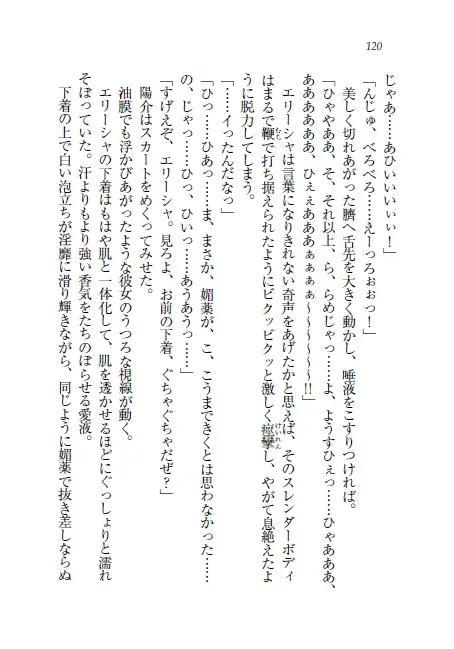 120
じゃあ……あひぃいいいぃぃ！」
「んじゅ、べろべろ……えーっろぉぉっ！」
美しく切れあがった臍へ舌先を大きく動かし、唾液をこすりつければ。
「ひゃやああ、そ、それ以上、ら、らめじゃっ……よ、ようすひぇっ……ひゃあああ、
ああああああ、ひぇぇあああぁぁぁぁ〜〜〜〜〜〜!!」
エリーシャは言葉になりきれない奇声をあげたかと思えば、そのスレンダーボディ
はまるで鞭で打ち据えられたようにビクッビクッと激しく痙攣し、やがて息絶えたよ
うに脱力してしまう。
「……イったんだなっ」
「ひっ……ひあっ……ま、まさか、媚薬が、こ、こうまできくとは思わなかった……
の、じゃっ……ひっ、ひいっ……あうあうっ……」
「すげえぞ、エリーシャ。見ろよ、お前の下着、ぐちゃぐちゃだぜ？」
陽介はスカートをめくってみせた。
油膜でも浮かびあがったような彼女のうつろな視線が動く。
エリーシャの下着はもはや肌と一体化して、肌を透かせるほどにぐっしょりと濡れ
そぼっていた。汗よりもより強い香気をたちのぼらせる愛液。
下着の上で白い泡立ちが淫靡に滑り輝きながら、同じように媚薬で抜き差しならぬ